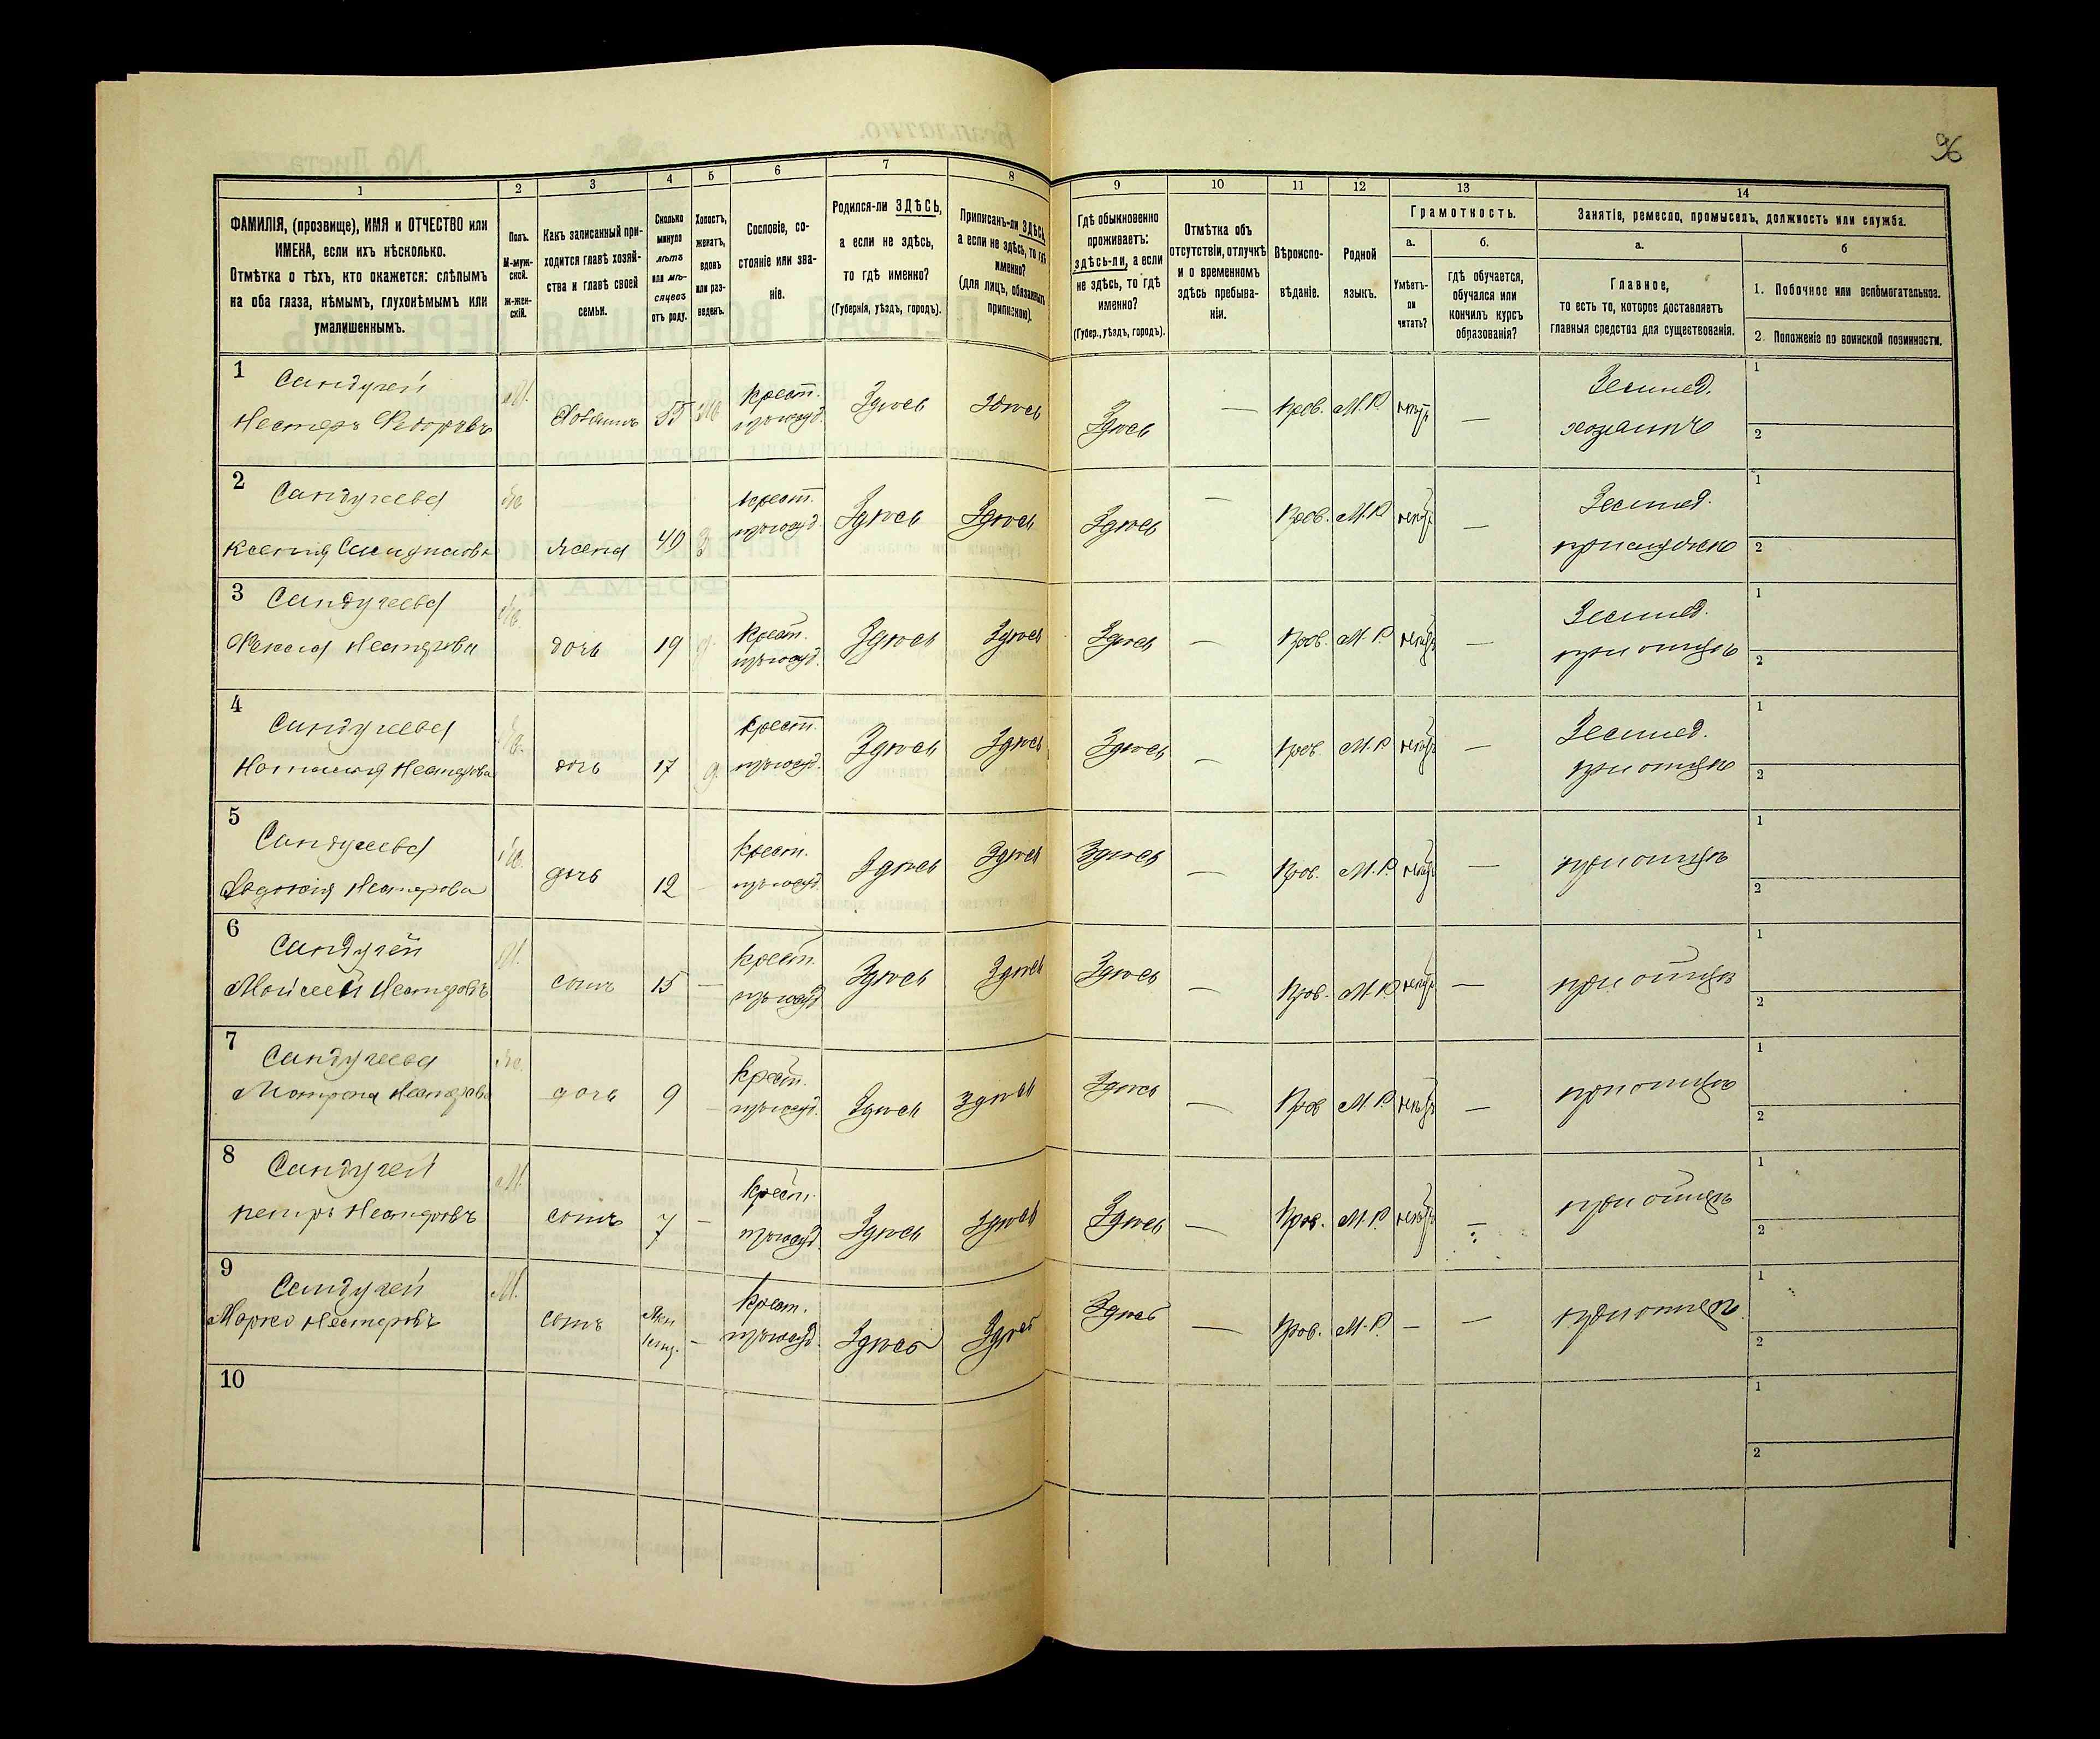 96
1 2 3 4 5 6 7 8 9 10 11 12 13 14
ФАМИЛІЯ, (прозвище), ИМЯ и ОТЧЕСТВО или
ИМЕНА, если ихъ нѣсколько.
Отмѣтка о тѣхъ, кто окажется: слѣпымъ
на оба глаза, нѣмымъ, глухонѣмымъ или
умалишеннымъ.
Полъ.
М-муж-
ской.
ж-жен-
скій.
Какъ записанный при-
ходится главѣ хозяй-
ства и главѣ своей
семьи.
Сколько
минуло
лѣтъ
или мѣ-
сяцевъ
отъ роду.
Холостъ,
женатъ,
вдовъ
или раз-
веденъ.
Сословіе, со-
стояніе или зва-
ніе.
Родился-ли ЗДѢСЬ,
а если не здѣсь,
то гдѣ именно?
(Губернія, уѣздъ, городъ).
Приписанъ-ли ЗДѢСЬ,
а если не здѣсь, то гдѣ
именно?
(для лицъ, обязанныхъ
припискою).
Гдѣ обыкновенно
проживаетъ:
здѣсь-ли, а если
не здѣсь, то гдѣ
именно?
(Губер., уѣздъ, городъ).
Отмѣтка объ
отсутствіи, отлучкѣ
и о временномъ
здѣсь пребыва-
ніи.
Вѣроиспо-
вѣданіе.
Родной
языкъ.
Грамотность.
а.
Умѣетъ-
ли
читать?
б.
гдѣ обучается,
обучался или
кончилъ курсъ
образованія?
Занятіе, ремесло, промыселъ, должность или служба.
а.
Главное,
то есть то, которое доставляетъ
главныя средства для существованія.
б
1. Побочное или вспомогательное.
2. Положеніе по воинской повинности.
1 Сандучей М. Крест. Здѣсь Здѣсь Здѣсь — Прав. М.Р. нѣтъ — Землед. 1
Нестеръ Федоровъ Хозяинъ 55 хозяинъ 2
2 Сандучева Ж Крест. Здѣсь Здѣсь Здѣсь — Прав. М.Р. нѣтъ — Землед. 1
Ксенія жена 49 З при мужѣ 2
3 Сандучева Ж. Крест. Здѣсь Здѣсь Здѣсь — Прав. М.Р. нѣтъ — Землед. 1
Нестерова дочь 19 д. при отцѣ 2
4 Сандучева Ж. Крест. Здѣсь Здѣсь Здѣсь — Прав. М.Р. нѣтъ — Землед. 1
Наталія Нестерова дочь 17 д. при отцѣ 2
5 Сандучева Ж. Крест. Здѣсь Здѣсь Здѣсь — Прав. М.Р. нѣтъ — при отцѣ 1
Евдокія Нестерова дочь 12 — 2
6 Сандучей М. Крест. Здѣсь Здѣсь Здѣсь — Прав. М.Р. нѣтъ — при отцѣ 1
Моисей Нестеровъ сынъ 15 — 2
7 Сандучева Ж. Крест. Здѣсь Здѣсь Здѣсь — Прав. М.Р. нѣтъ — при отцѣ 1
Матрена Нестерова дочь 9 — 2
8 Сандучей М. Крест. Здѣсь Здѣсь Здѣсь — Прав. М.Р. нѣтъ — при отцѣ 1
Петръ Нестеровъ сынъ 7 — 2
9 Сандучей М. Крест. Здѣсь Здѣсь Здѣсь — Прав. М.Р. — — при отцѣ 1
Марко Нестеровъ сынъ — 2
10 1
2